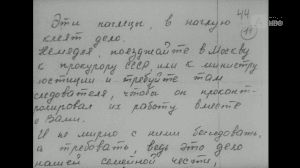 44
11
HBO
Эти наглецы, в наглую
клеят дело.
Немедля, поезжайте в Москву
к прокурору СССР, или к министру
юстиции и требуйте там
следователя, чтобы он проконт-
ролировал их работу вместе
с Вами.
И не мирно с ними беседовать,
а требовать, ведь это дело
нашей семейной чести,